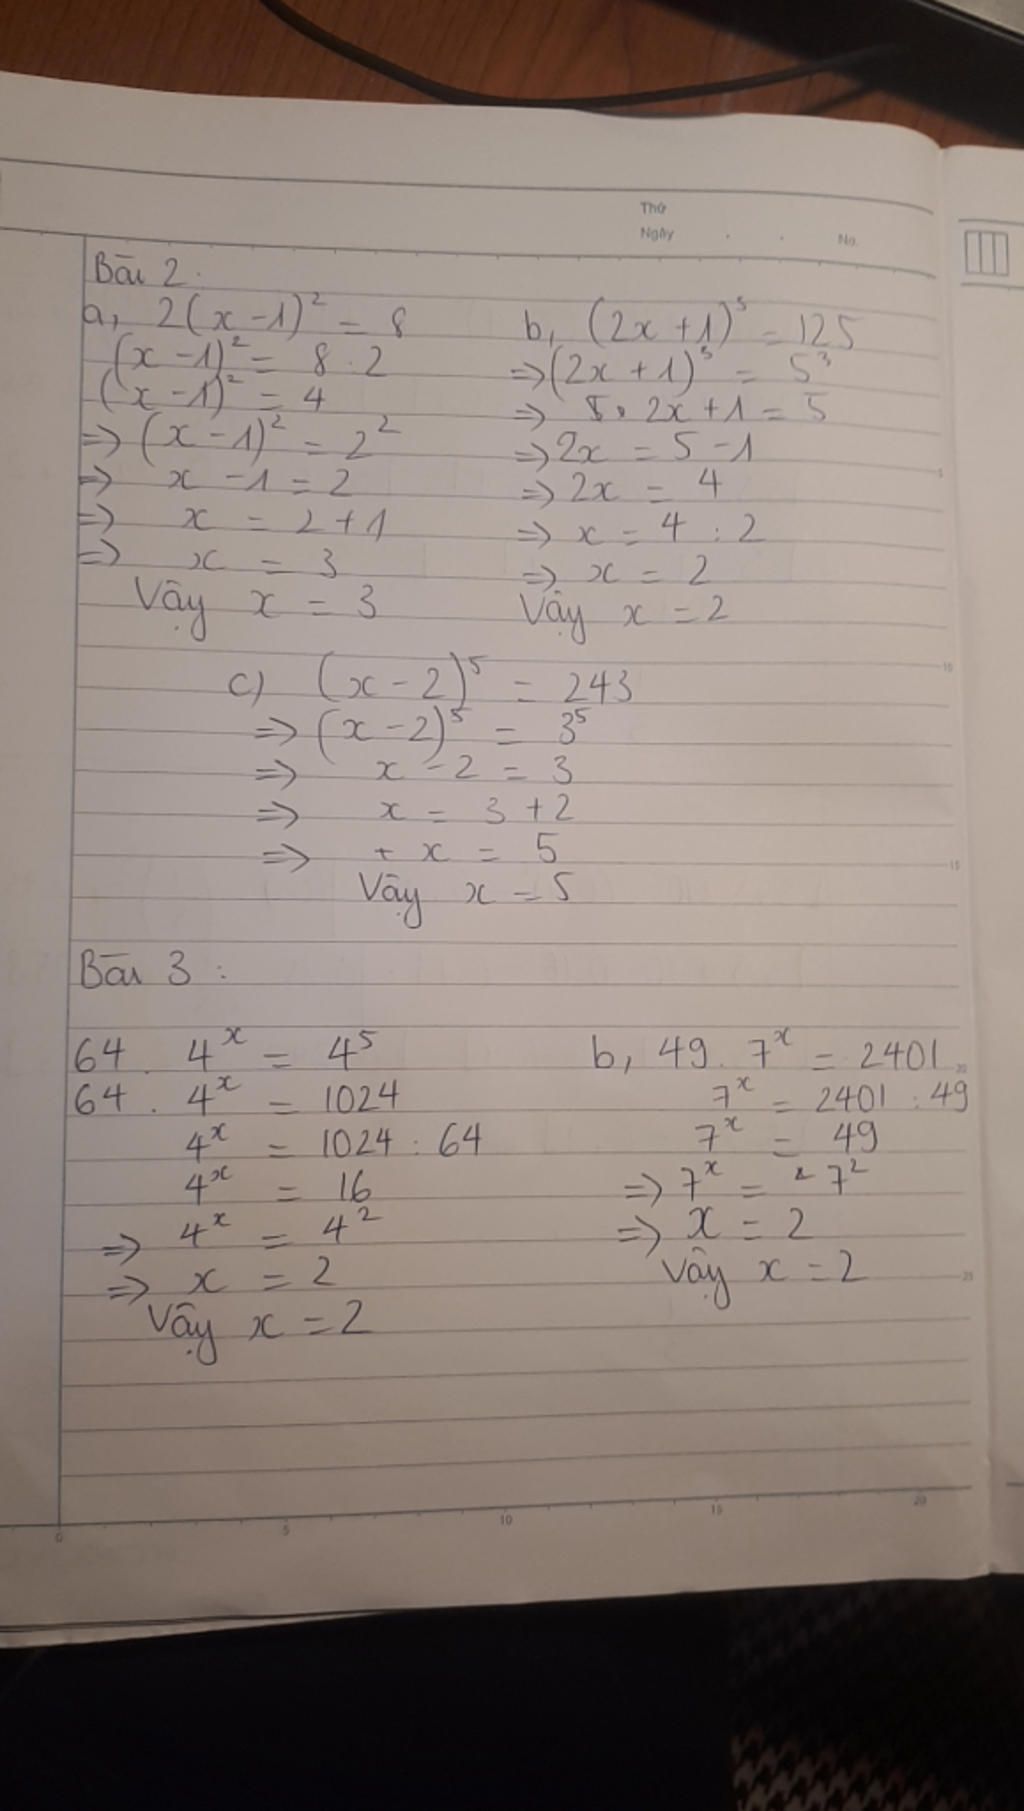 Thứ
Ngày . . No.
Bài 2 :
a, 2(x - 1)² = 8
(x - 1)² = 8 : 2
(x - 1)² = 4
=> (x - 1)² = 2²
=> x - 1 = 2
=> x = 2 + 1
=> x = 3
Vậy x = 3
b, (2x + 1)³ = 125
=> (2x + 1)³ = 5³
=> 2x + 1 = 5
=> 2x = 5 - 1
=> 2x = 4
=> x = 4 : 2
=> x = 2
Vậy x = 2
c) (x - 2)⁵ = 243
=> (x - 2)⁵ = 3⁵
=> x - 2 = 3
=> x = 3 + 2
=> x = 5
Vậy x = 5
Bài 3 :
64 . 4ˣ = 4⁵
64 . 4ˣ = 1024
4ˣ = 1024 : 64
4ˣ = 16
=> 4ˣ = 4²
=> x = 2
Vậy x = 2
b, 49 . 7ˣ = 2401
7ˣ = 2401 : 49
7ˣ = 49
=> 7ˣ = 7²
=> x = 2
Vậy x = 2
5
10
15
20
25
0 5 10 15 20